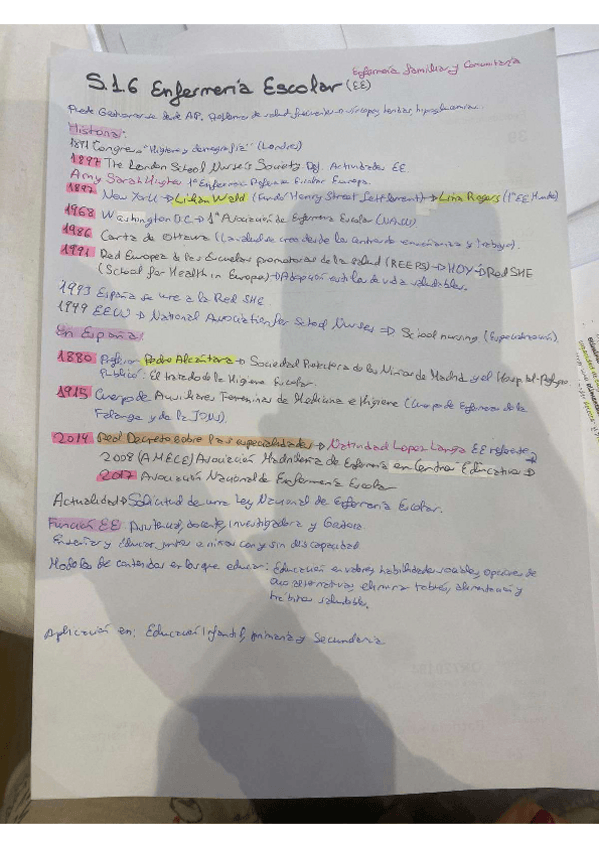 Enfermería familiar y Comunitaria
S.16 Enfermería Escolar (EE)
Puede Gestionarse desde AP. Problemas de salud frecuentes → síncopes, heridas, hipoglucemias.
Historia:
Congreso "Higiene y demografía" (Londres)
1897 The London School Nurse's Society. Def. Actividades EE.
Amy Sarah Hughes 1ª Enfermera Defensa Escolar Europa.
New York → Lilian Wald (Fundó Henry Street Settlement) → Lina Rogers (1ª EE Mundo)
1968 Washington D.C → 1ª Asociación de Enfermería Escolar (NASN)
1986 Carta de Ottawa (La salud se crea desde los centros de enseñanza y trabajo).
1991 Red Europea de las Escuelas promotoras de la salud (REEPS) → HOY → Red SHE
(School for Health in Europe) → Adopción estilos de vida saludables.
1993 España se une a la Red SHE
1949 EEUU → National Association for School Nurses ⇒ School nursing (Especialización)
En España:
1880 Profesor Pedro Alcántara → Sociedad Protectora de los Niños de Madrid y el Hospital-Refugio.
Publicó: El tratado de la Higiene Escolar.
1915 Cuerpo de Auxiliares Femeninas de Medicina e Higiene (Cuerpo de Enfermeras de la
Falange y de las JONS).
2014 Real Decreto sobre las especialidades → Natividad López Langa EE referente →
2008 (AMECE) Asociación Madrileña de Enfermería en Centros Educativos →
2017 Asociación Nacional de Enfermería Escolar
Actualidad → Solicitud de una Ley Nacional de Enfermería Escolar.
Función EE: Asistencial, docente, investigadora y Gestora
Enseñar y educar juntos a niños con y sin discapacidad
Modelos de contenidos en los que educar: Educación en valores, habilidades sociales, opciones de
ocio alternativas, eliminar tabús, alimentación y
hábitos saludables.
Aplicación en: Educación Infantil, primaria y Secundaria